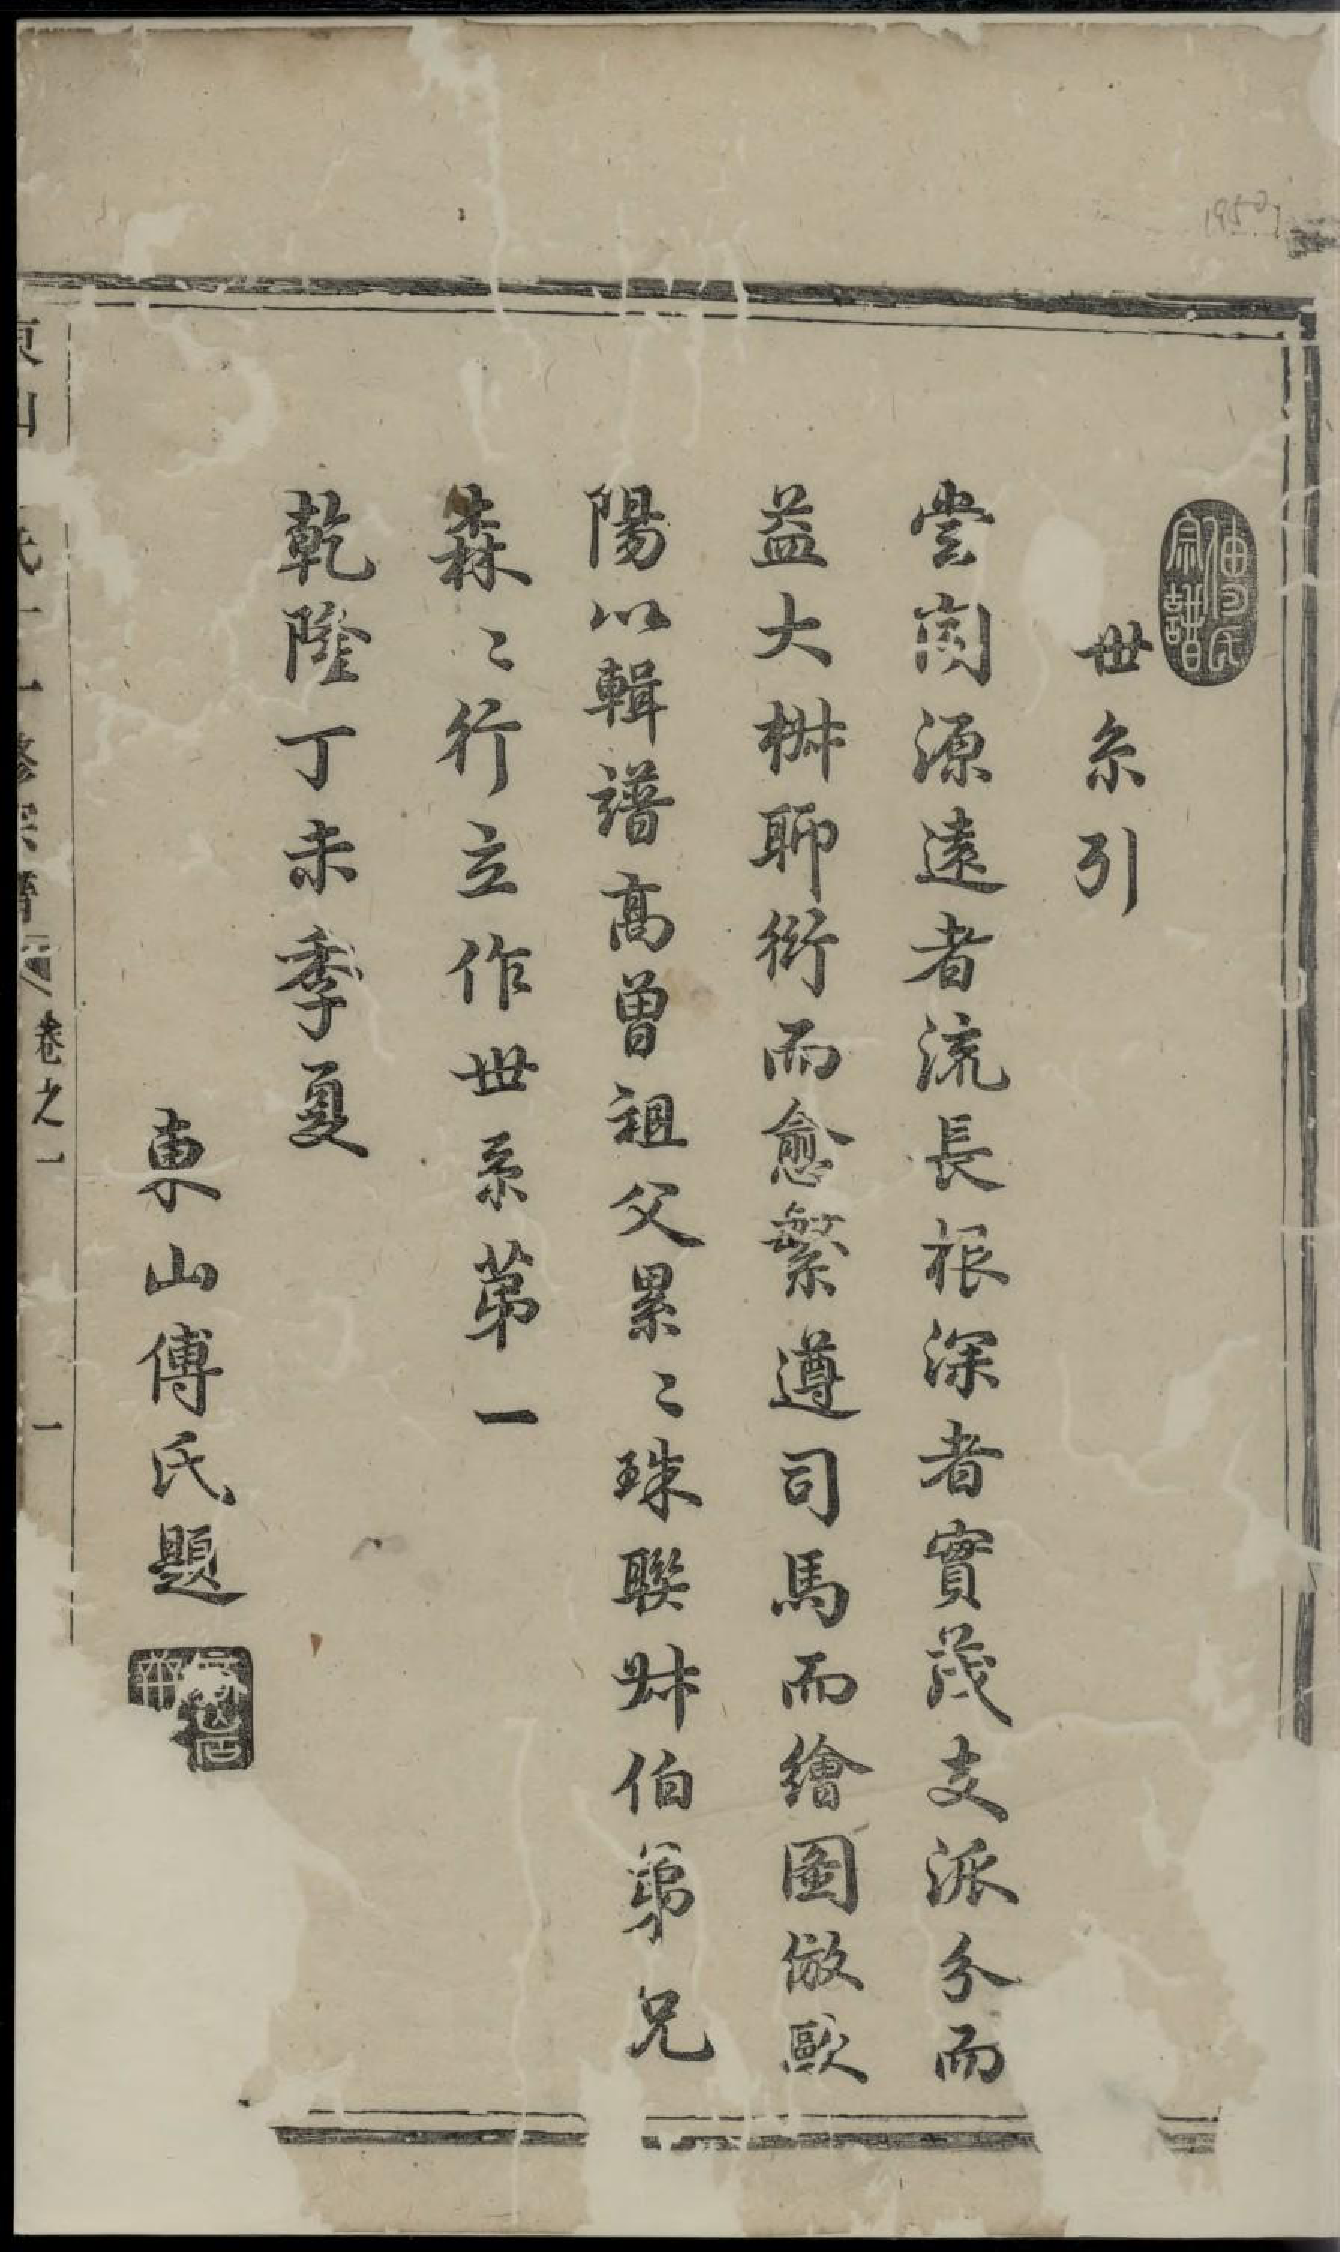 傅氏宗譜
世系引
嘗聞源遠者流長根深者實茂支派分而
益大椒聊衍而愈繁遵司馬而繪圖倣歐
陽以輯譜高曾祖父累〻珠聯叔伯弟兄
森〻行立作世系第一
乾隆丁未季夏
東山傅氏題
卷之一
一
1950